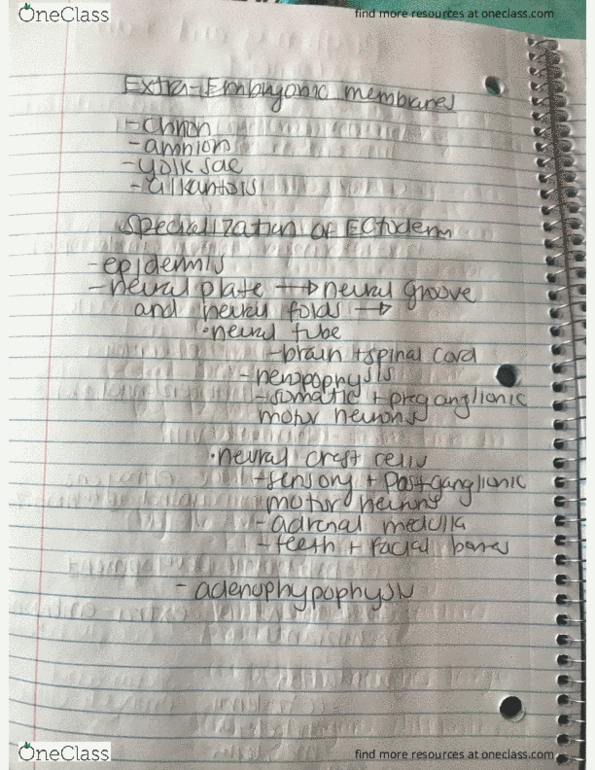 OneClass
find more resources at oneclass.com
Extra-Embryonic membranes
-chorion
-amnion
-yolk sac
-allantois
Specialization of Ectoderm
-epidermis
-neural plate → neural groove
and neural folds →
•neural tube
-brain + spinal cord
-neurophysis
-somatic + preganglionic
motor neurons
•neural crest cells
-sensory + Postganglionic
motor neurons
-adrenal medulla
-teeth + facial bones
-adenophypophysis
OneClass
find more resources at oneclass.com